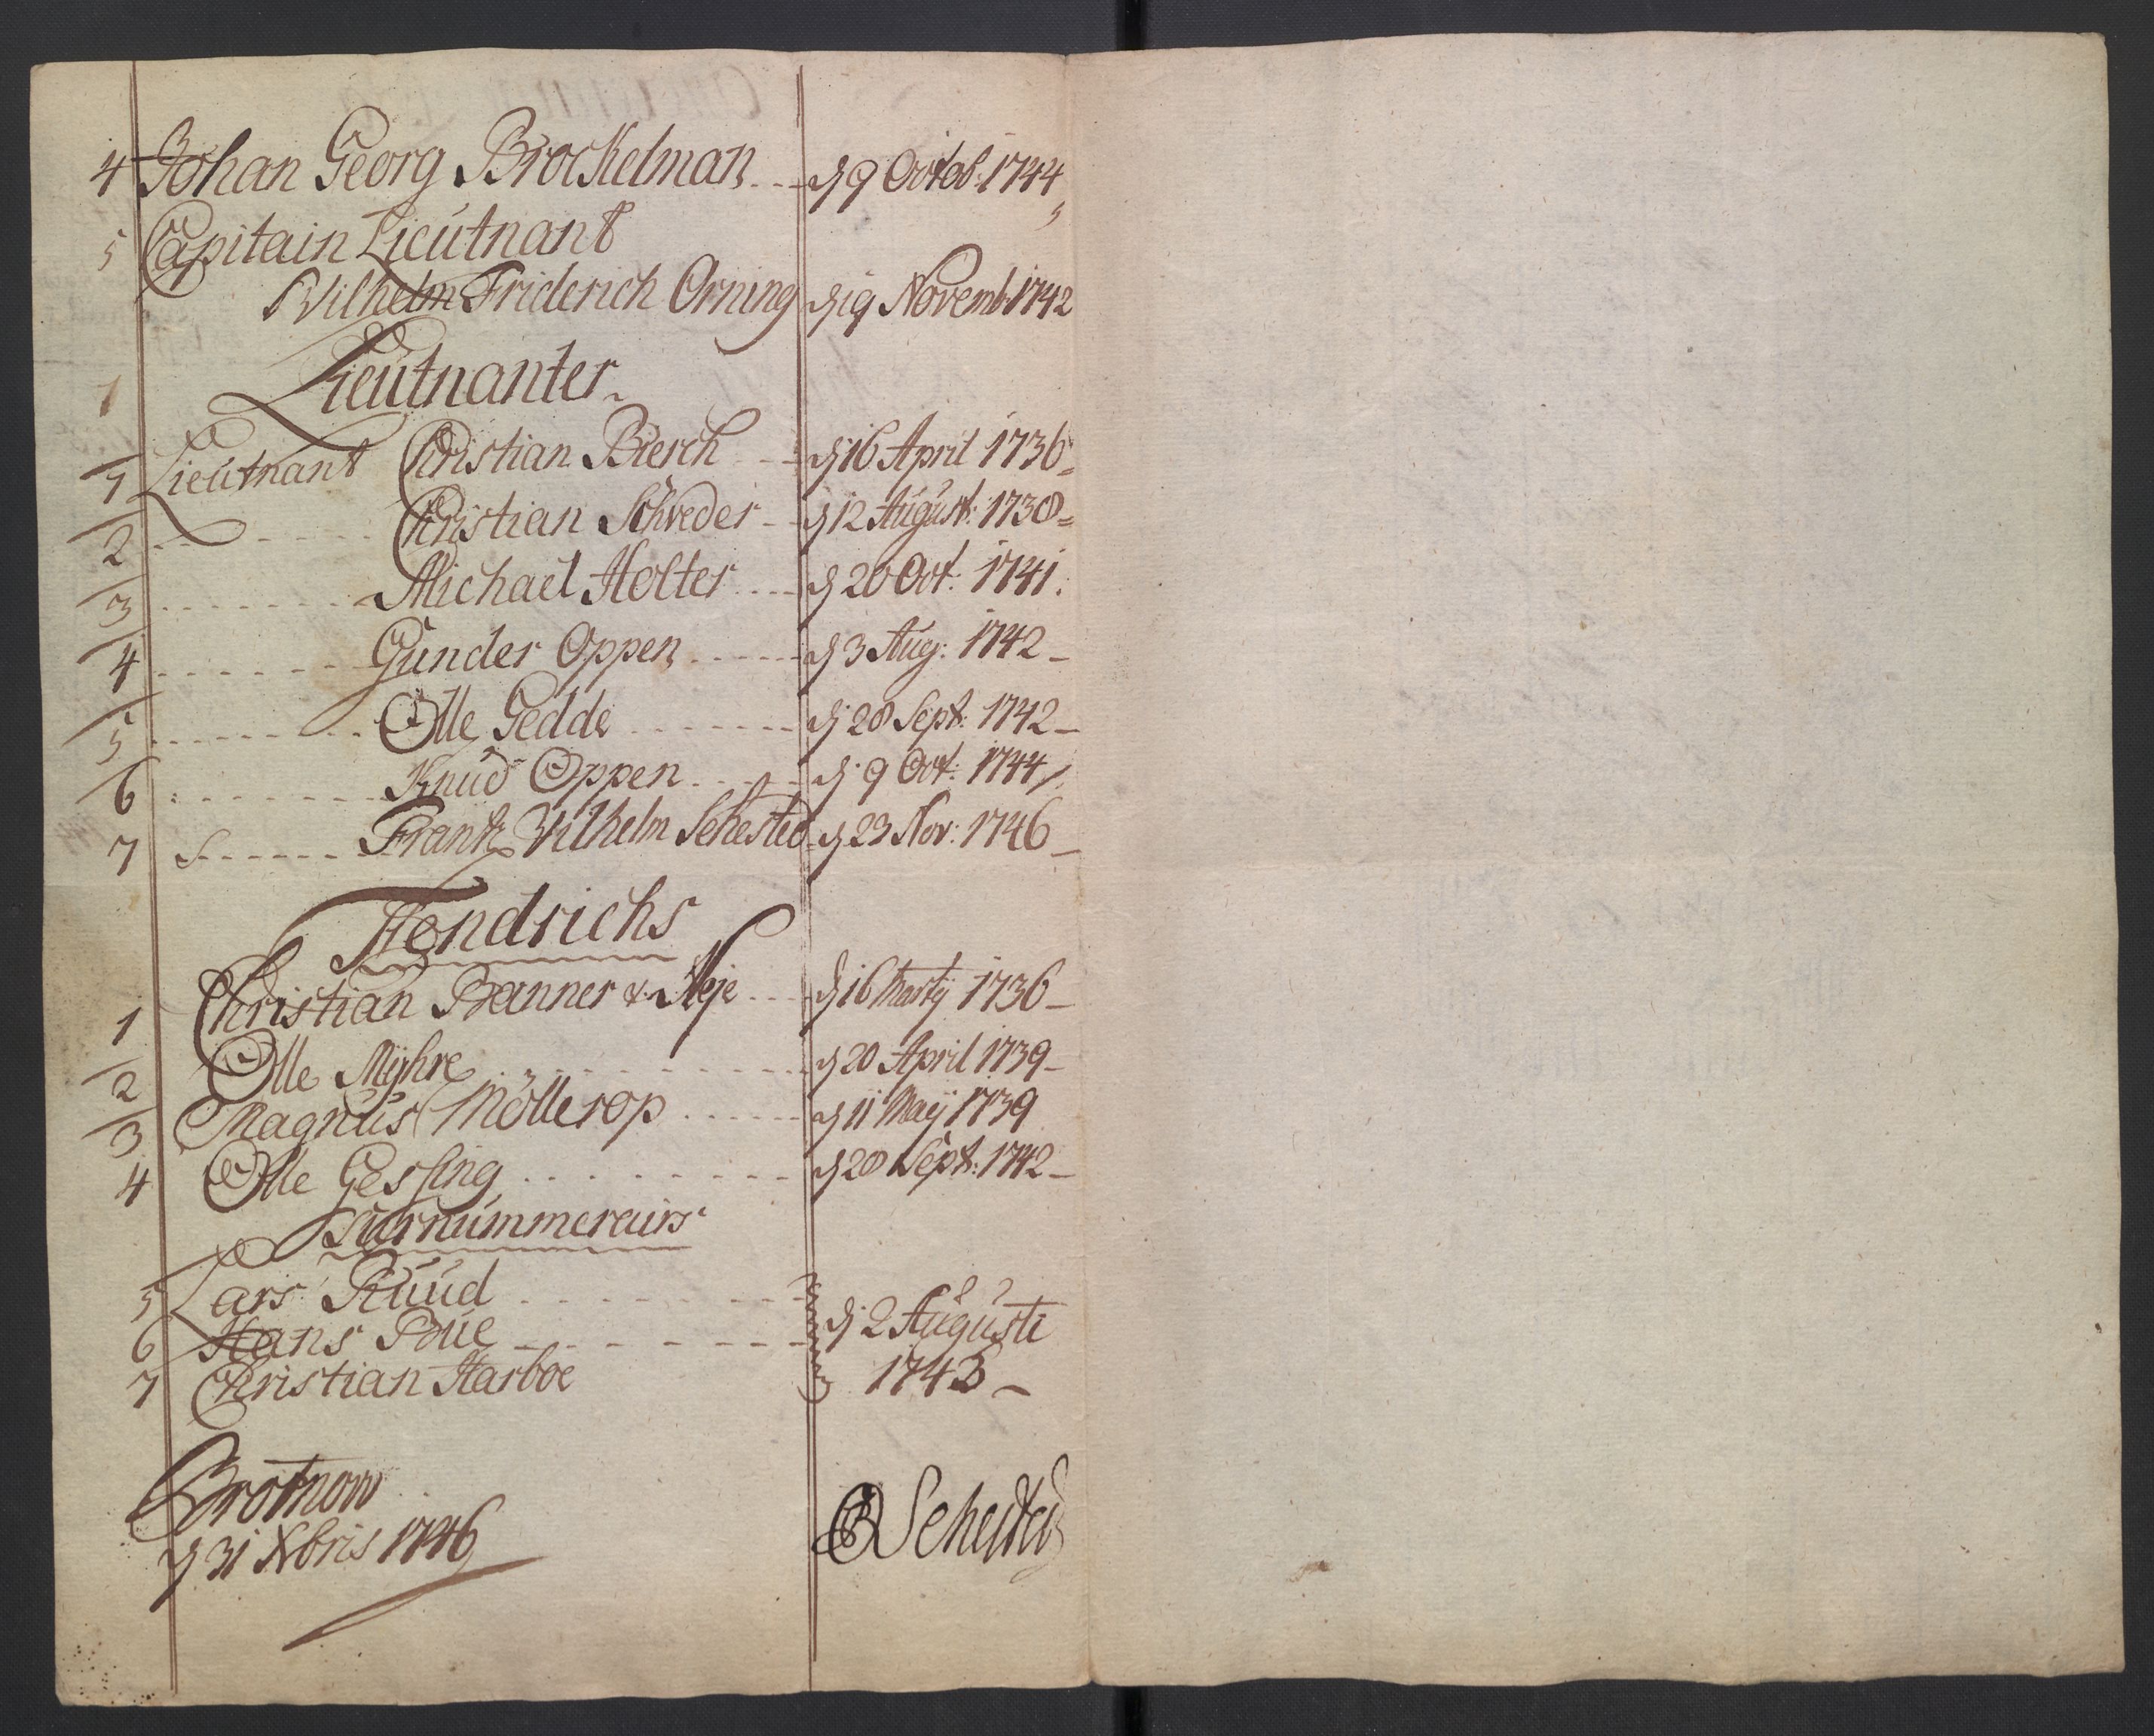 4 Johan Georg Brockelman --- d 9 Octob: 1744
5 Capitain Lieutnant
Wilhelm Friderich Orning d 19 Novemb 1742
Lieutnanter.
1
1 Lieutnant Christian Biersch -- d 16 April 1736
2 Christian Schreder -- d 12 August: 1738
3 Michael Holter --- d 20 Oct: 1741.
4 Gunder Oppen ---- d 3 Aug: 1742
5 Olle Gedde ----- d 28 Sept: 1742
6 Knud Oppen ---- d 9 Oct: 1744
7 Frantz Wilhelm Sehested d 23 Nov: 1746
Fendrichs
1 Christian Banner v. Ane d 16 Martij 1736
2 Olle Mÿhre d 20 April 1739
3 Magnus Möllerop d 11 Maij 1739
4 Olle Gessing d 28 Sept: 1742
Surnummerairs
5 Lars Ruud
6 Hans Bue d 2 Augusti
7 Christian Harboe 1743
Brotnow
d 31 Xbris 1746
Sehested